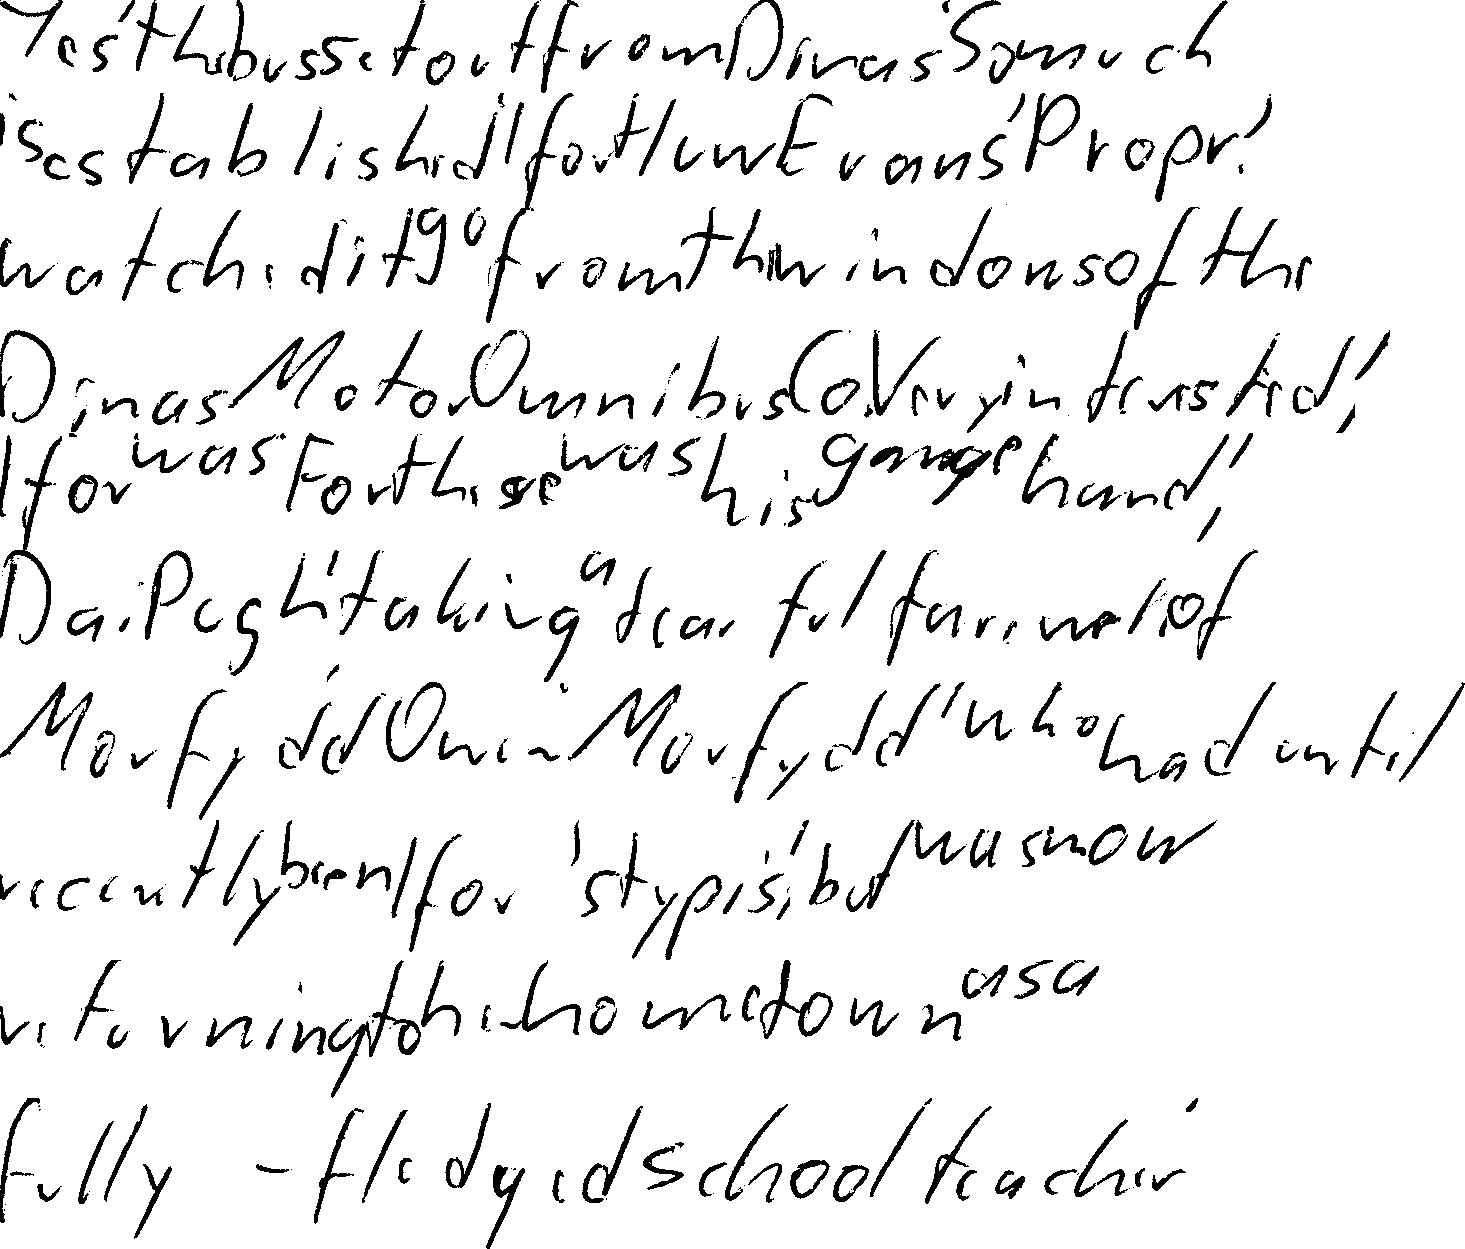 Yes, the bus set out from Dinas. So much
is established, for Huw Evans, Propr.,
watched it go from the windows of the
Dinas Motor Omnibus Co. Very interested,
for was For there was his garage hand,
Dai Pugh, taking a tearful farewell of
Morfydd Owen. Morfydd, who had until
recently been for 'typist', but was now
returning to her home town as a
fully-fledged schoolteacher.